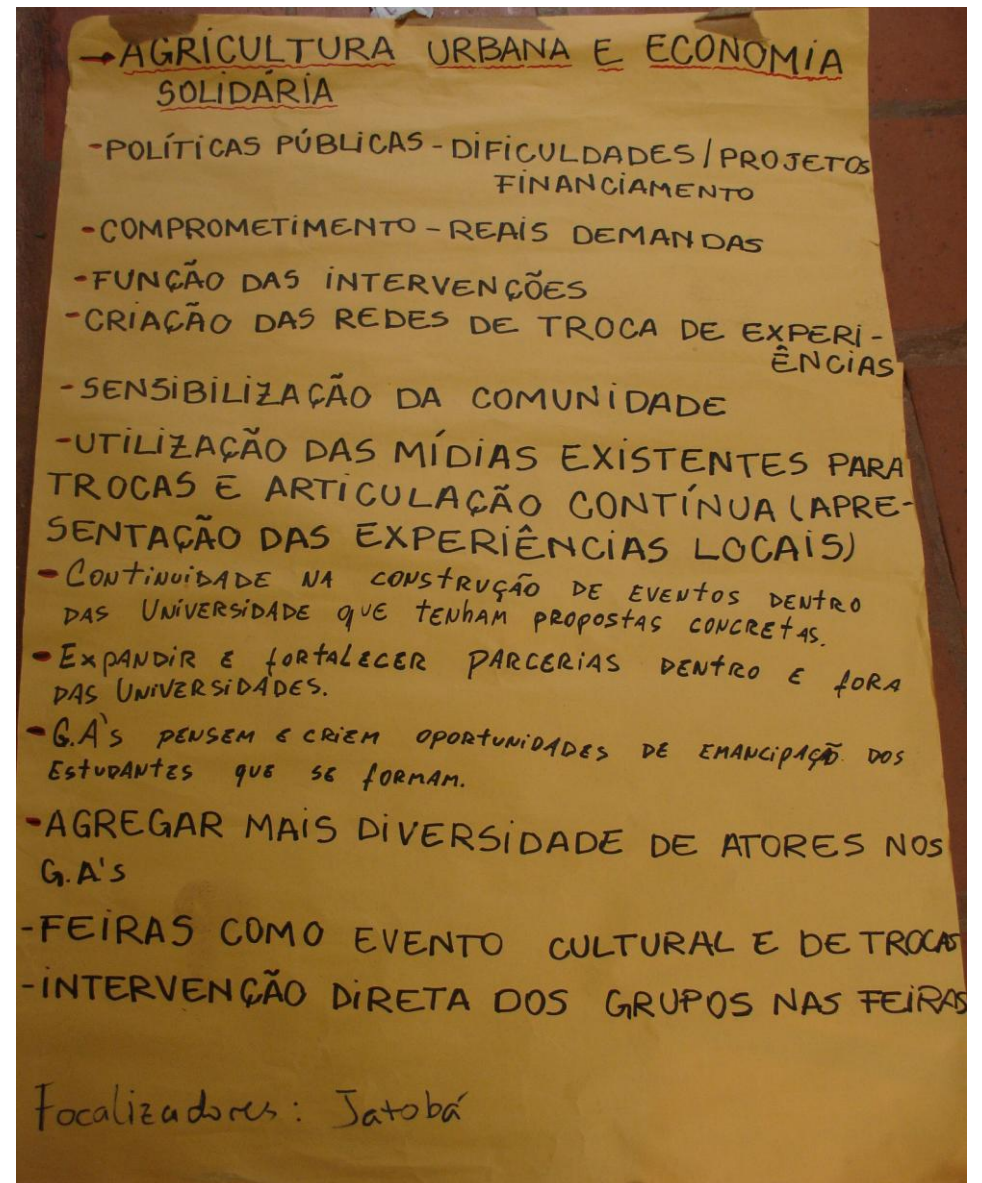 →AGRICULTURA URBANA E ECONOMIA
SOLIDÁRIA
-POLÍTICAS PÚBLICAS-DIFICULDADES/PROJETOS
FINANCIAMENTO
-COMPROMETIMENTO-REAIS DEMANDAS
-FUNÇÃO DAS INTERVENÇÕES
-CRIAÇÃO DAS REDES DE TROCA DE EXPERI-
ÊNCIAS
-SENSIBILIZAÇÃO DA COMUNIDADE
-UTILIZAÇÃO DAS MÍDIAS EXISTENTES PARA
TROCAS E ARTICULAÇÃO CONTÍNUA (APRE-
SENTAÇÃO DAS EXPERIÊNCIAS LOCAIS)
-CONTINUIDADE NA CONSTRUÇÃO DE EVENTOS DENTRO
DAS UNIVERSIDADE QUE TENHAM PROPOSTAS CONCRETAS.
-EXPANDIR E FORTALECER PARCERIAS DENTRO E FORA
DAS UNIVERSIDADES.
-G.A's PENSEM E CRIEM OPORTUNIDADES DE EMANCIPAÇÃO DOS
ESTUDANTES QUE SE FORMAM.
-AGREGAR MAIS DIVERSIDADE DE ATORES NOS
G.A's
-FEIRAS COMO EVENTO CULTURAL E DE TROCAS
-INTERVENÇÃO DIRETA DOS GRUPOS NAS FEIRAS
Focalizadores: Jatobá